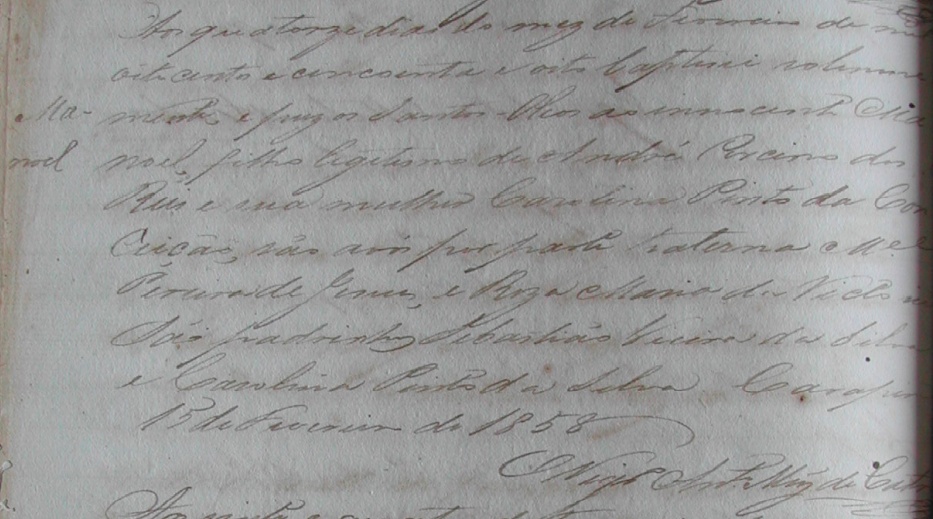 Aos quatorze dias do mez de Fevereiro de mil
oito cento e cincoenta e oito baptisei solemne
mente, e puz os Santos Oleos ao innocente Ma
Ma-
noel
noel, filho legitimo de André Porcino dos
Reis e sua mulher Carolina Pinto da Con
ceição, são avós por parte paterna Mel
Pereira de Jesus, e Roza Maria da
São padrinhos Sebastião Vieira da Silva
e Carolina Pinto da Silva
15 de Fevereiro de 1858
O Vigr.º Ant.º de